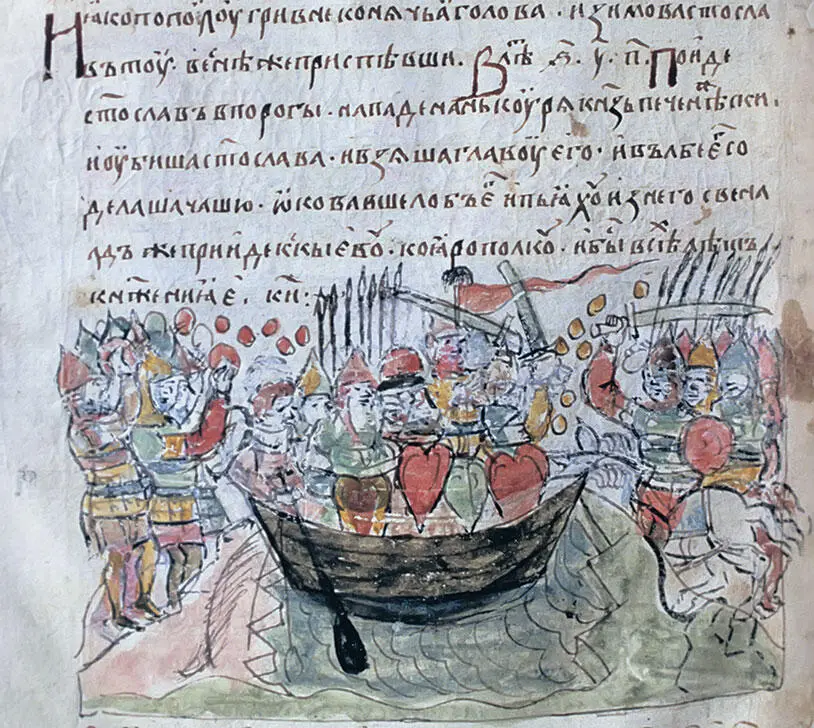 Ињкополоугривнеконячьаголова · изимовастосла
вътоу · веснѣжеприспѣвши · Влѣ ҂ѕ · у · п · Поиде
стославъвпорогы · инападенаньк꙽оурякнѧзьпеченѣски ·
иоубишастослава · ивзяшаглавоуего · ивълбеегⷭ҇о
делашачашю · ѡковавшелобъегⷭ҇ ипьяхоⷯизнего свена
лдъ жеприидекъкыевоⷹ · коꙗрополкоⷹ · ибыⷭ҇всѣхлѣтъ
княжениꙗ е҃ · ки҃ :